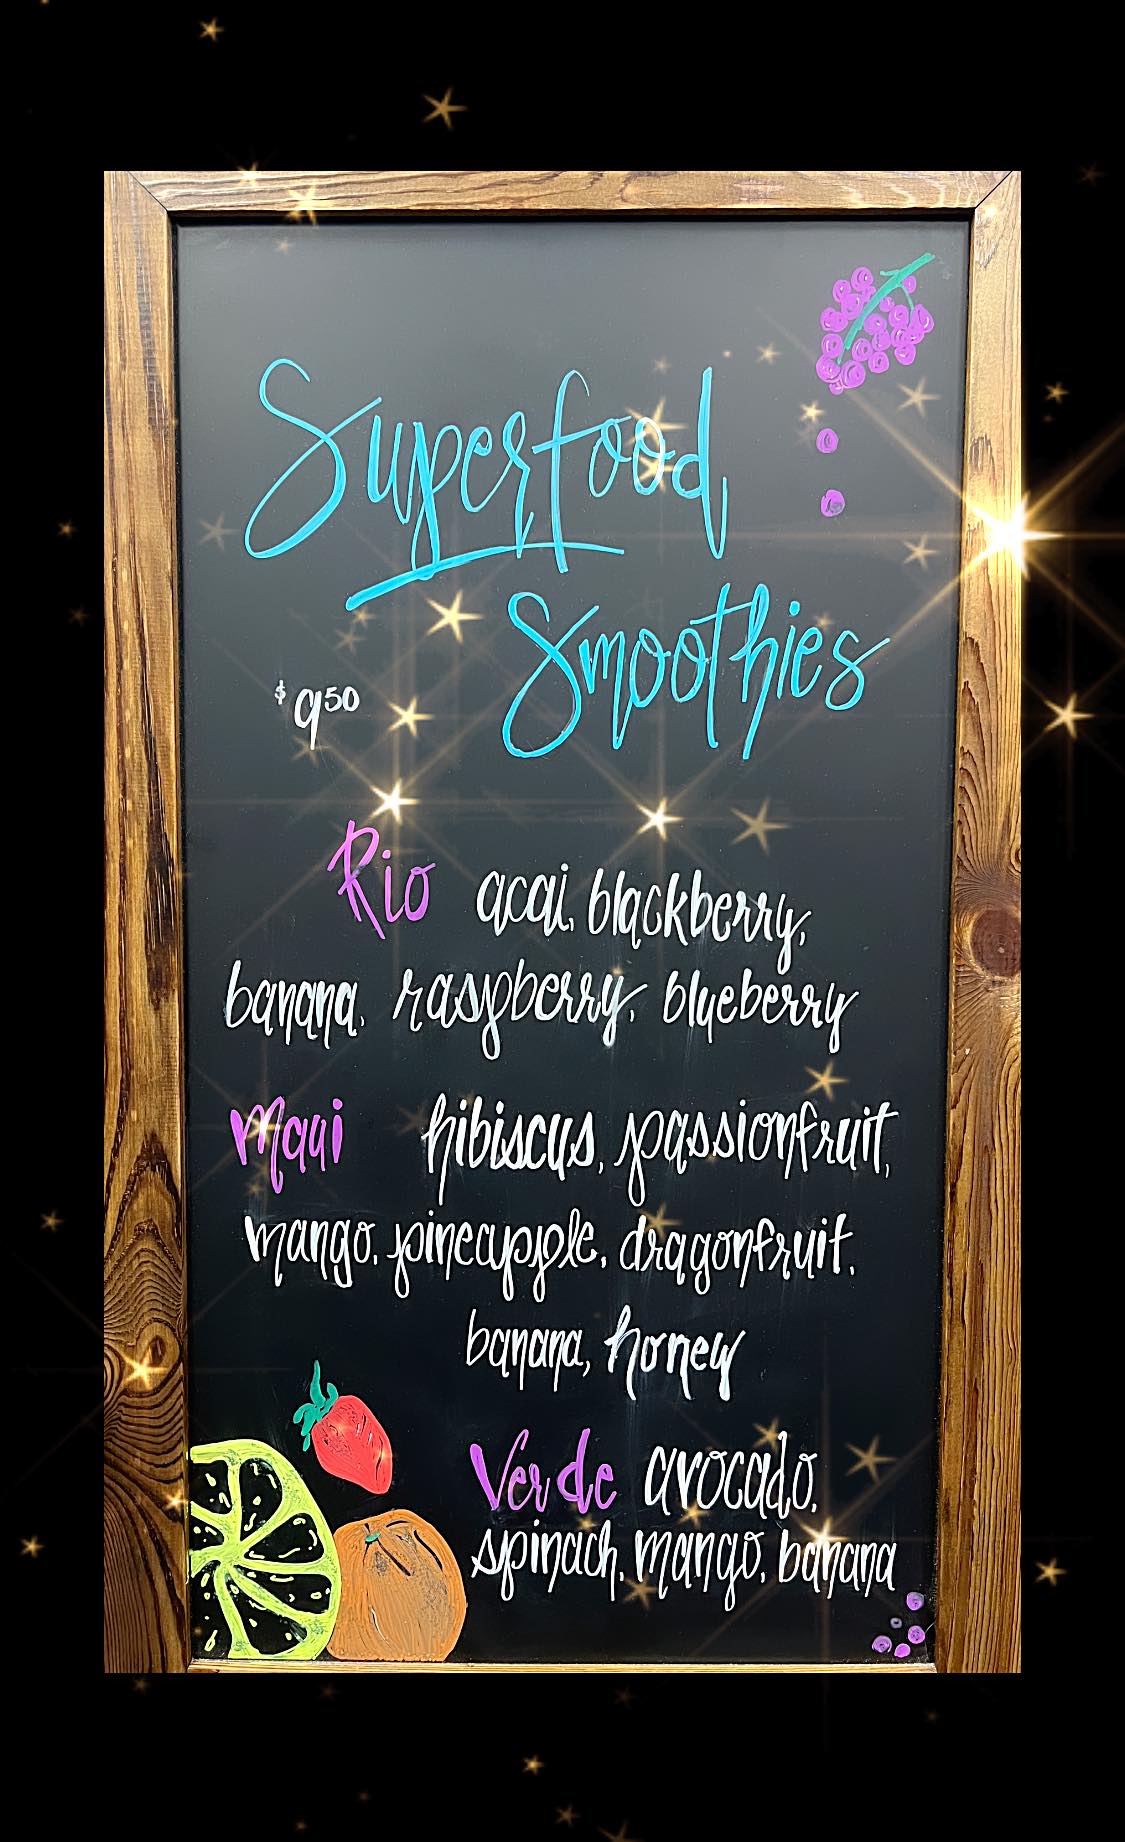 Superfood
Smoothies
$9.50
Rio acai, blackberry,
banana, raspberry, blueberry
Maui hibiscus, passionfruit,
mango, pineapple, dragonfruit,
banana, honey
Verde avocado,
spinach, mango, banana